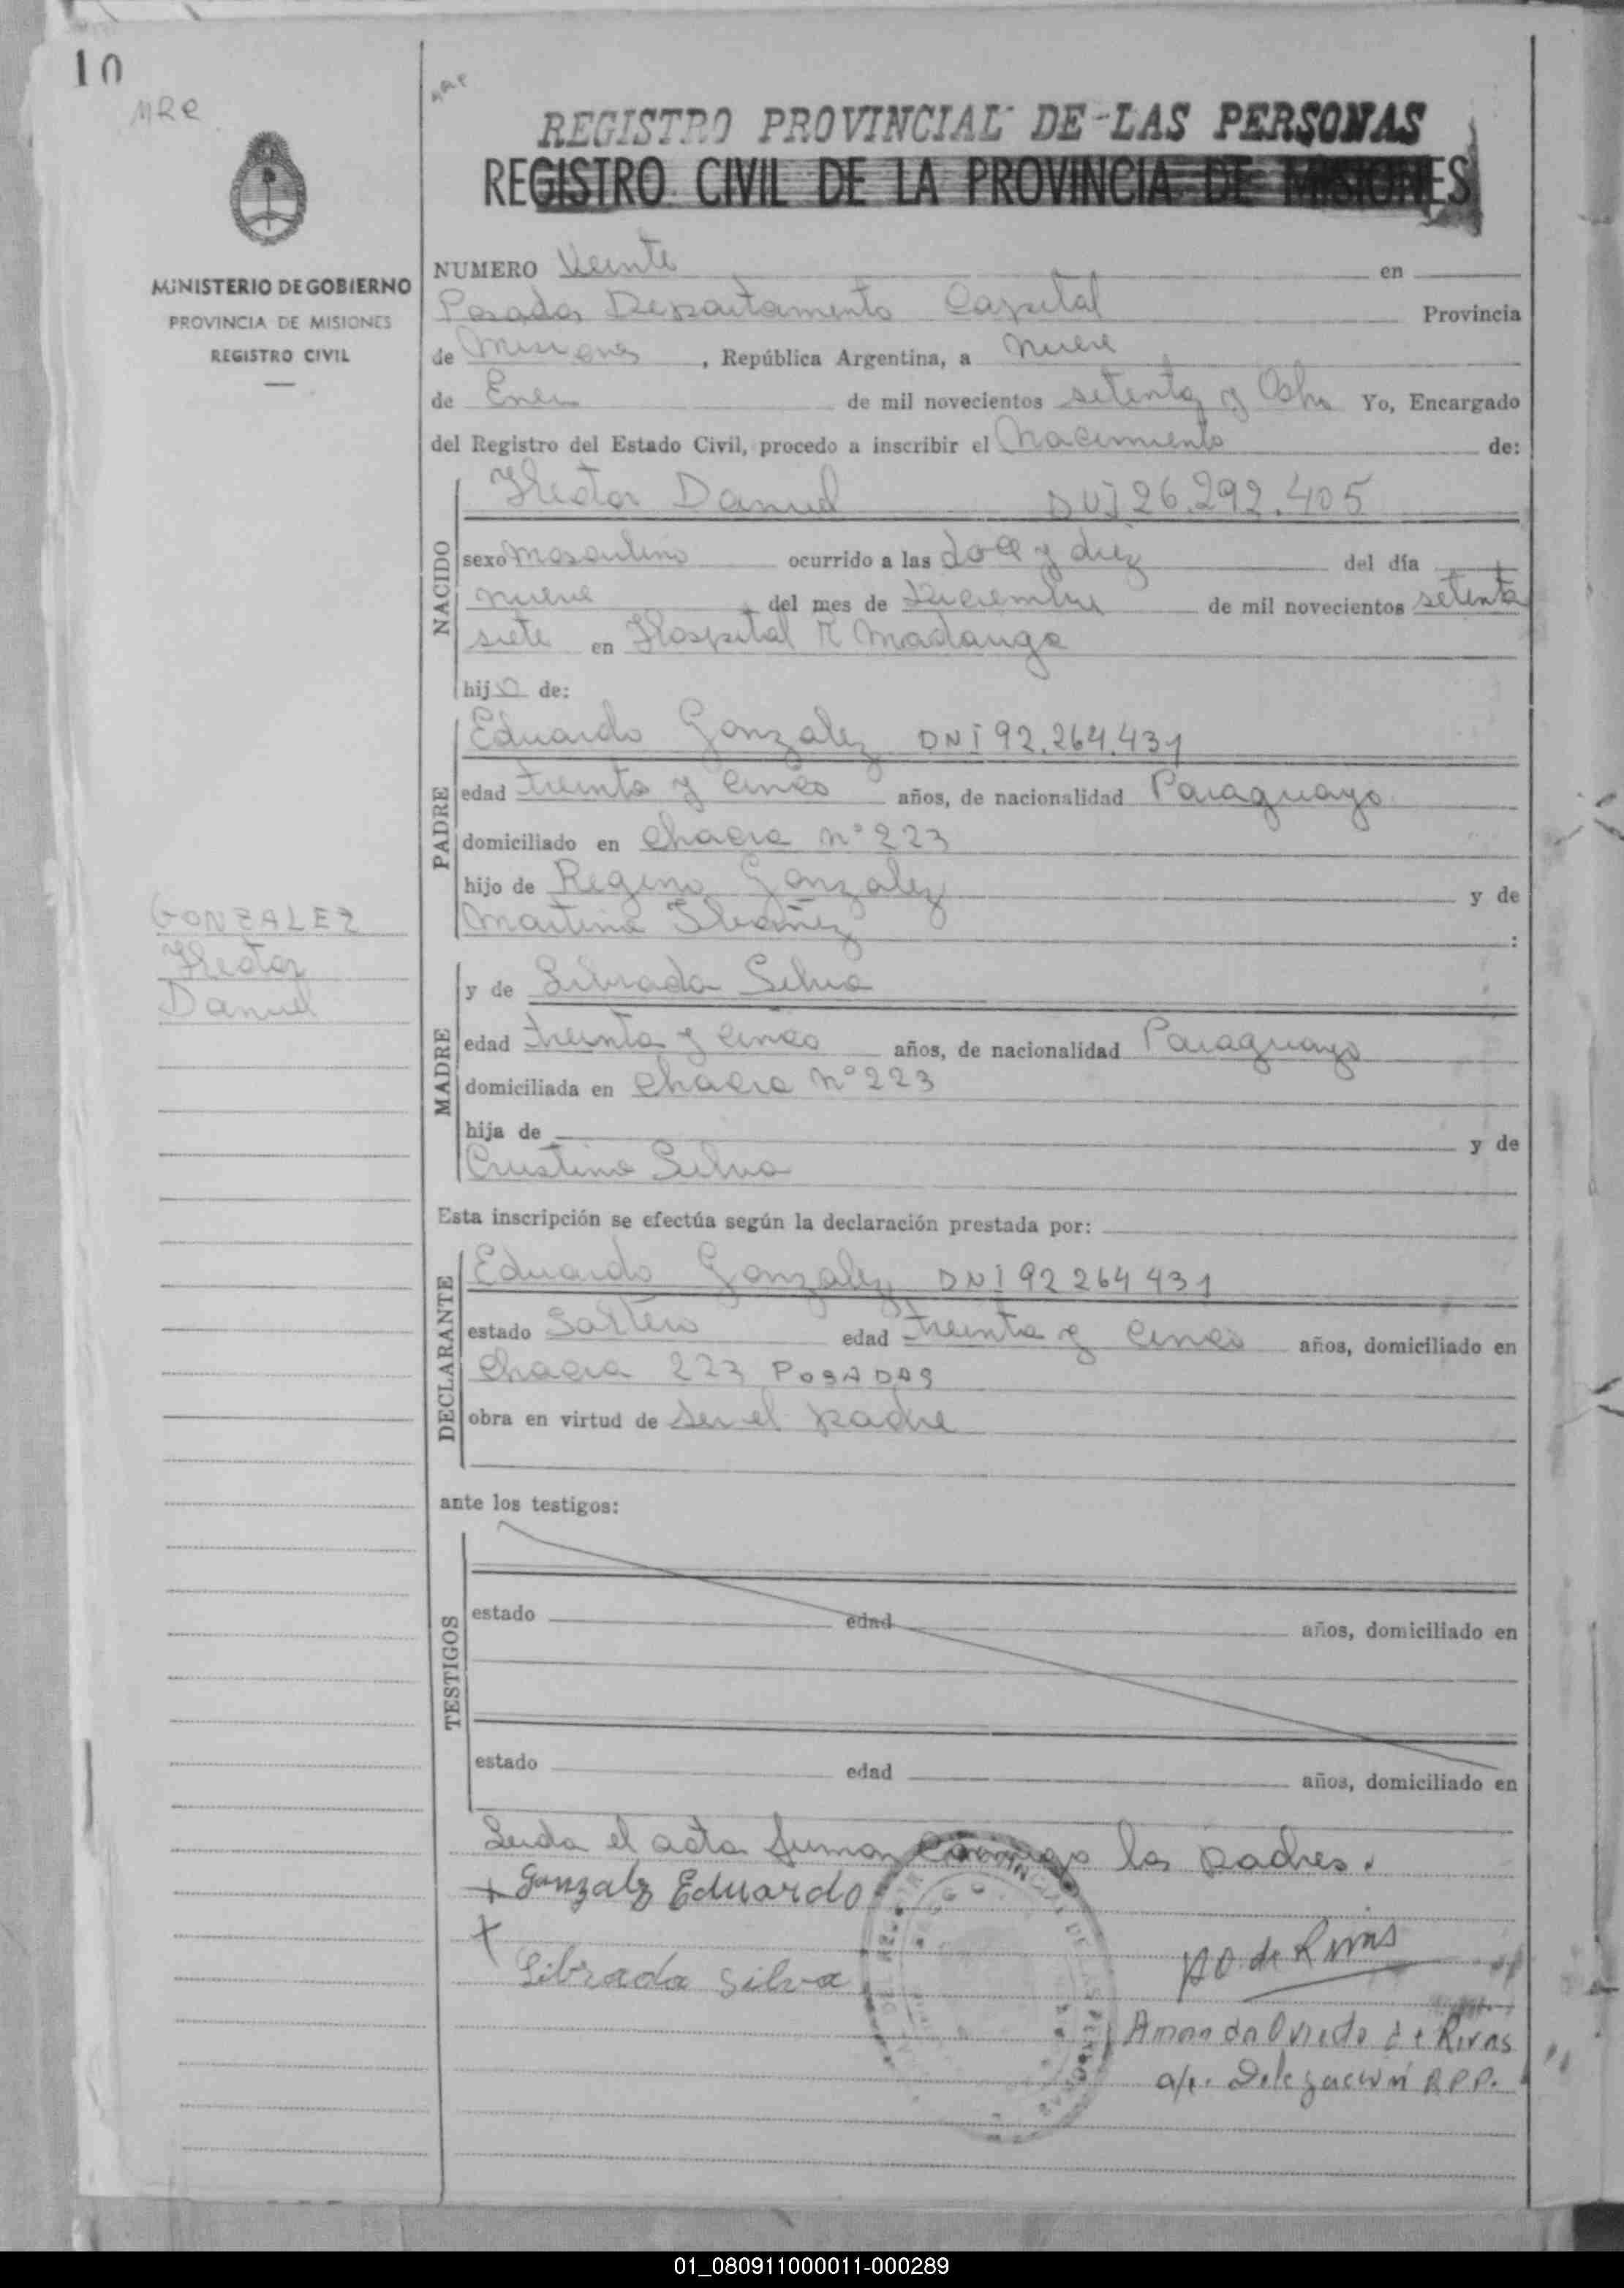 10
MRR
REGISTRO PROVINCIAL DE LAS PERSONAS
REGISTRO CIVIL DE LA PROVINCIA DE MISIONES
MINISTERIO DE GOBIERNO
PROVINCIA DE MISIONES
REGISTRO CIVIL
NUMERO Veinte en
Posadas Departamento Capital Provincia
de Misiones, República Argentina, a nueve
de Enero de mil novecientos setenta y Ocho Yo, Encargado
del Registro del Estado Civil, procedo a inscribir el Nacimiento de:
Hector Daniel DUI 26.292.405
NACIDO
sexo Masculino ocurrido a las doce y diez del día
nueve del mes de Diciembre de mil novecientos setenta
siete en Hospital R Madariaga
hijo de:
PADRE
Eduardo Gonzalez DNI 92.264.431
edad treinta y cinco años, de nacionalidad Paraguayo
domiciliado en Chacra nº 223
hijo de Regino Gonzalez y de
Martina Ibañez :
GONZALEZ
Hector
Daniel
MADRE
y de Librada Silva
edad treinta y cinco años, de nacionalidad Paraguaya
domiciliada en Chacra Nº 223
hija de y de
Cristina Silva
Esta inscripción se efectúa según la declaración prestada por:
DECLARANTE
Eduardo Gonzalez DNI 92 264 431
estado Soltero edad treinta y cinco años, domiciliado en
Chacra 223 POSADAS
obra en virtud de ser el padre
ante los testigos:
TESTIGOS
estado edad años, domiciliado en
estado edad años, domiciliado en
Leida el acta firman conmigo los padres.
+ Gonzalz Eduardo
+
Librada Silva
AO. de Rivas
Amanda Oviedo de Rivas
a/c. Delegación R.P.P.
01_080911000011-000289